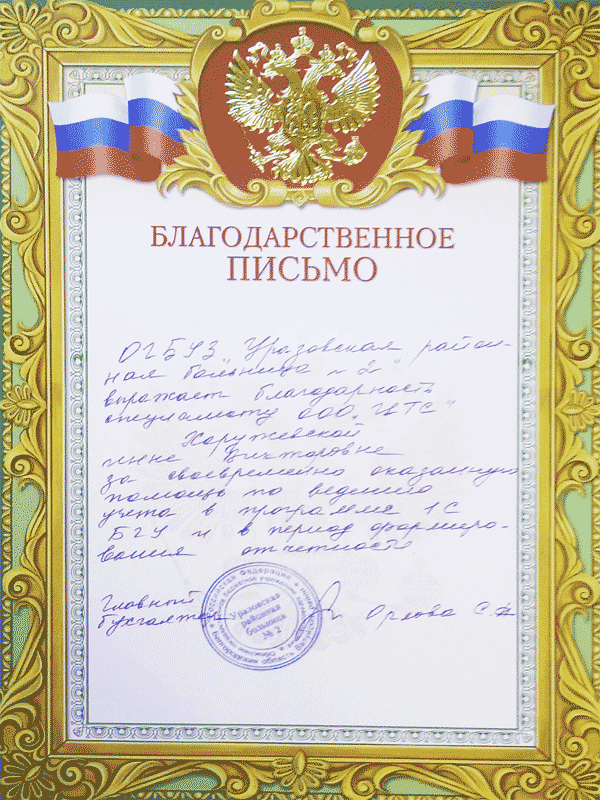 БЛАГОДАРСТВЕННОЕ
ПИСЬМО
ОГБУЗ „Уразовская район-
ная больница №2"
выражает благодарность
специалисту ООО „ЦТС"
Харужевской
Инне Викторовне
за своевремейно оказанную
помощь по ведению
учета в программе 1С
БГУ и в период формиро-
вания отчетности
Главный
бухгалтер Орлова С.
Уразовская
районная
больница
№ 2